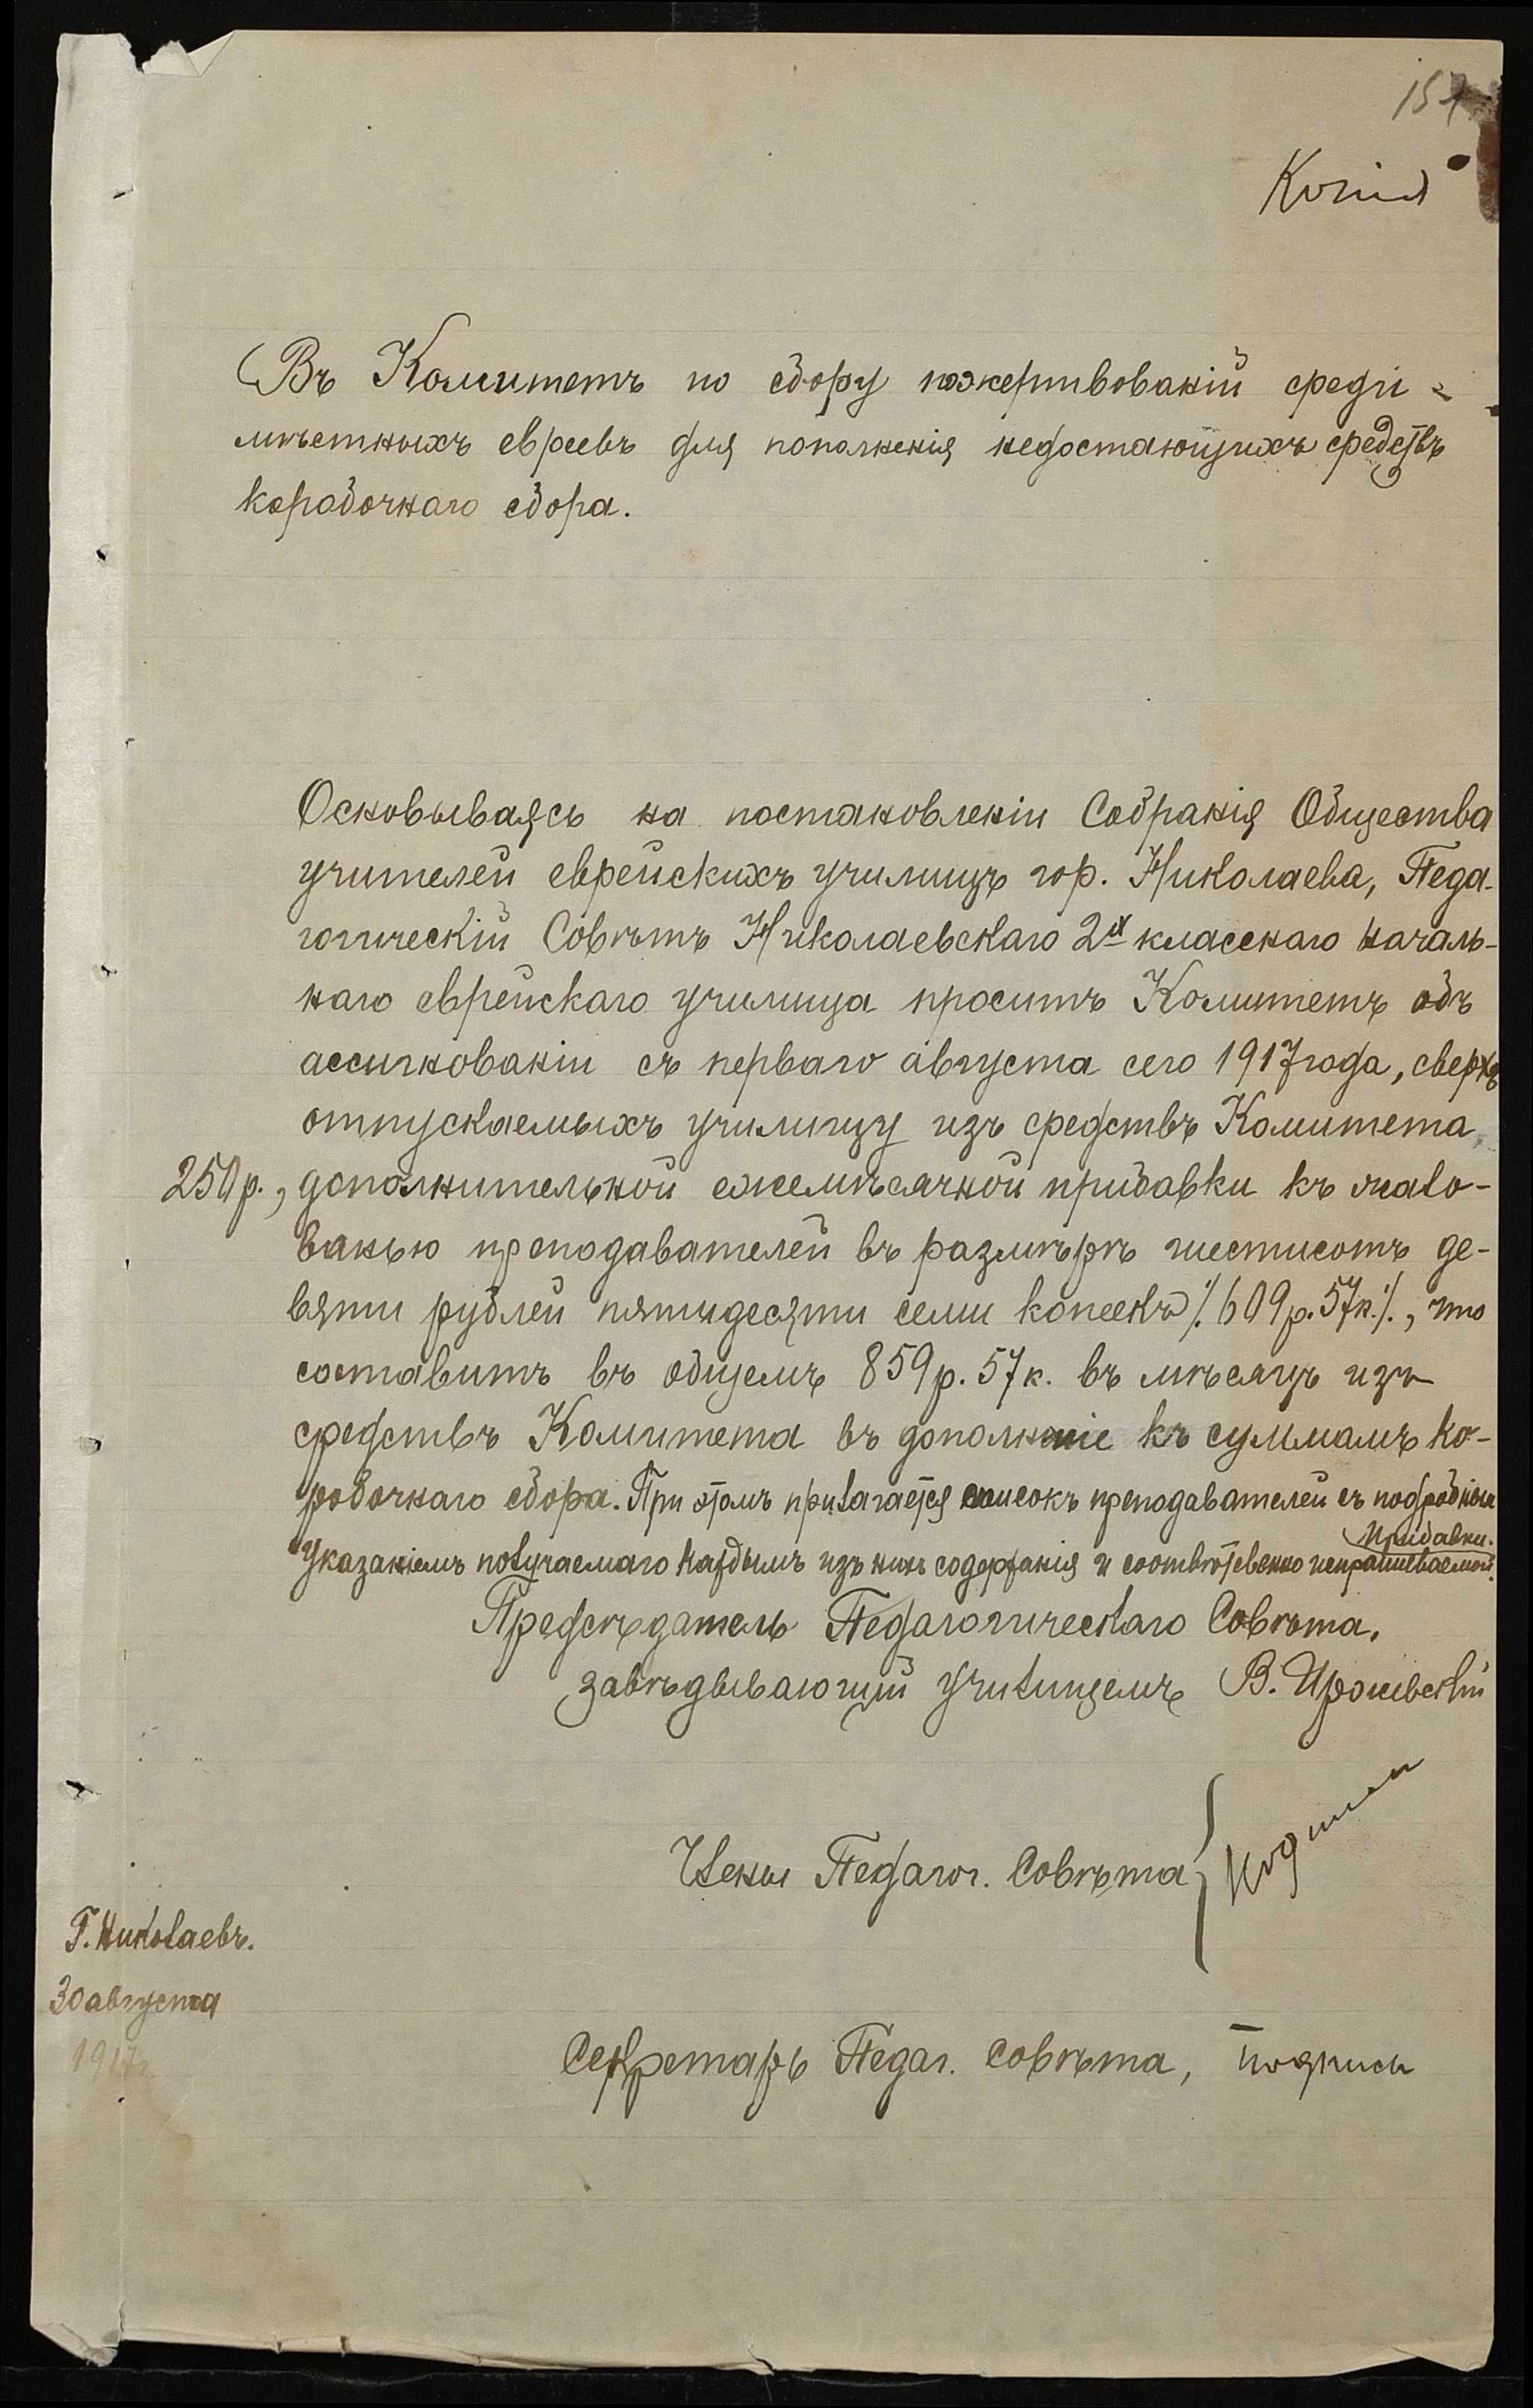 157
Копія
Въ Комитетъ по сбору пожертвованій среди
мѣстныхъ евреевъ для пополненія недостающихъ средствъ
коробочнаго сбора.
Основываясь на постановленіи Собранія Общества
учителей еврейскихъ училищъ гор. Николаева, Педа-
гогическій Совѣтъ Николаевскаго 2х класснаго началь-
наго еврейскаго училища проситъ Комитетъ объ
ассигнованіи съ перваго августа сего 1917 года, сверхъ
отпускаемыхъ училищу изъ средствъ Комитета
250 р., дополнительной ежемѣсячной прибавки къ жало-
ванью преподавателей въ размѣрѣ шестисотъ де-
вяти рублей пятидесяти семи копеекъ ⁒ 609 р. 57 к. ⁒, что
составитъ въ общемъ 859 р. 57 к. въ мѣсяцъ изъ
средствъ Комитета въ дополненіе къ суммамъ ко-
робочнаго сбора. При этомъ прилагается списокъ преподавателей съ подробным
указаніемъ получаемаго каждымъ изъ нихъ содержанія и соотвѣтственно испрашиваемой
прибавки.
Предсѣдатель Педагогическаго Совѣта,
завѣдывающій училищемъ В.
Члены Педагог. Совѣта
Г. Николаевъ.
30 августа
1917 г
Секретарь Педаг. Совѣта, подпись